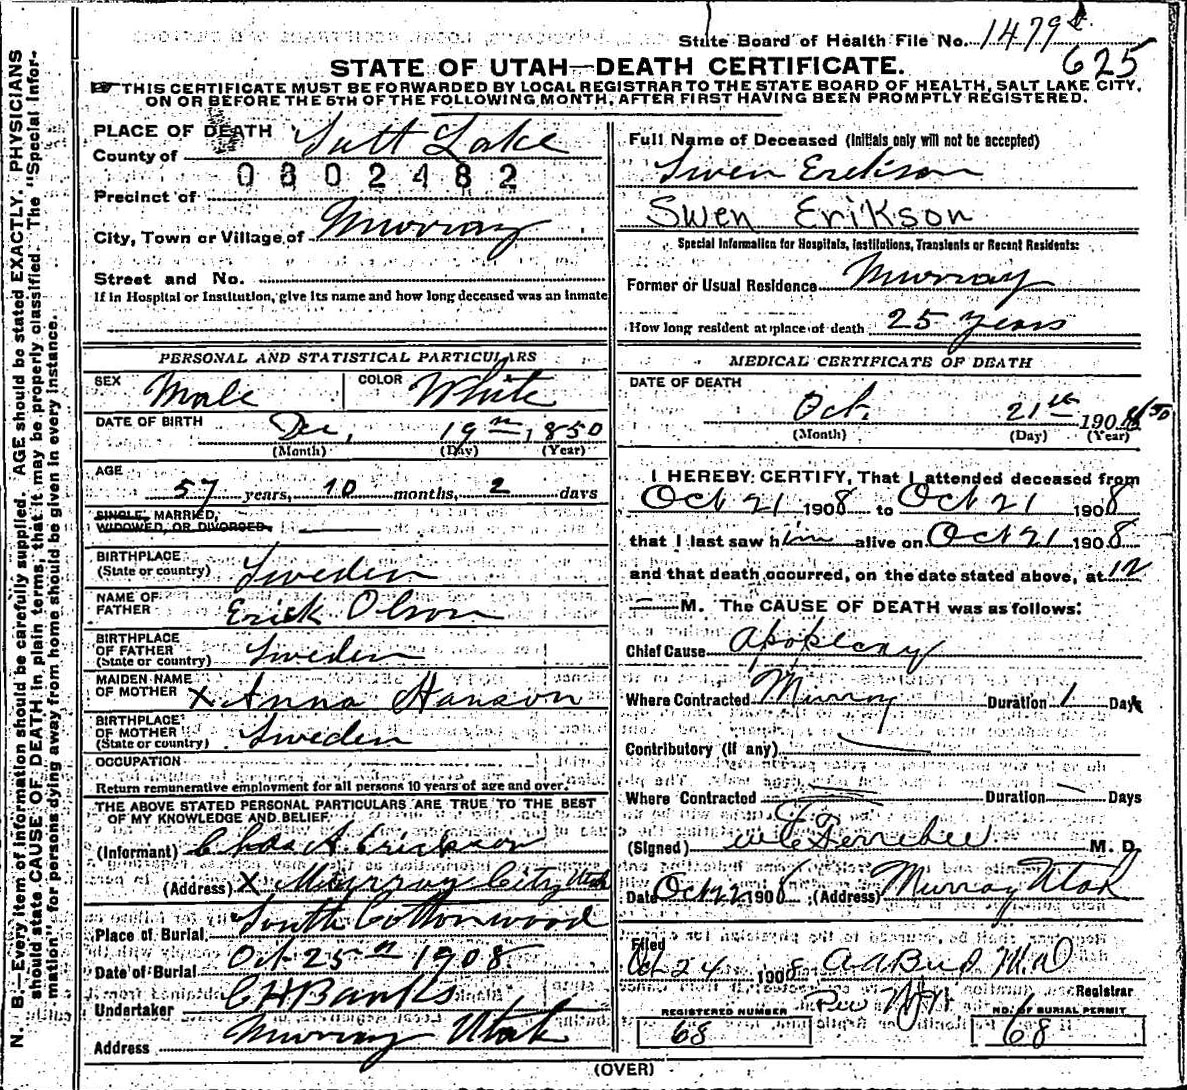 State Board of Health File No. 1479
625
STATE OF UTAH—DEATH CERTIFICATE.
☞ THIS CERTIFICATE MUST BE FORWARDED BY LOCAL REGISTRAR TO THE STATE BOARD OF HEALTH, SALT LAKE CITY,
ON OR BEFORE THE 5TH OF THE FOLLOWING MONTH, AFTER FIRST HAVING BEEN PROMPTLY REGISTERED.
N. B.—Every item of information should be carefully supplied. AGE should be stated EXACTLY. PHYSICIANS
should state CAUSE OF DEATH in plain terms, that it may be properly classified. The "Special Infor-
mation" for persons dying away from home should be given in every instance.
PLACE OF DEATH
County of Salt Lake
0802482
Precinct of
City, Town or Village of Murray
Street and No.
If in Hospital or Institution, give its name and how long deceased was an inmate
PERSONAL AND STATISTICAL PARTICULARS
SEX Male COLOR White
DATE OF BIRTH Dec, 19th, 1850
(Month) (Day) (Year)
AGE
57 years, 10 months, 2 days
SINGLE, MARRIED,
WIDOWED, OR DIVORCED
BIRTHPLACE
(State or country) Sweden
NAME OF
FATHER Erick Olson
BIRTHPLACE
OF FATHER
(State or country) Sweden
MAIDEN NAME
OF MOTHER X Anna Hanson
BIRTHPLACE
OF MOTHER
(State or country) Sweden
OCCUPATION
Return remunerative employment for all persons 10 years of age and over.
THE ABOVE STATED PERSONAL PARTICULARS ARE TRUE TO THE BEST
OF MY KNOWLEDGE AND BELIEF.
(Informant) Chas A. Erickson
(Address) X Murray City Utah
Place of Burial South Cottonwood
Date of Burial Oct 25th 1908
Undertaker C H Banks
Address Murray Utah
Full Name of Deceased (Initials only will not be accepted)
Swen Erikson
Swen Erikson
Special Information for Hospitals, Institutions, Transients or Recent Residents:
Former or Usual Residence Murray
How long resident at place of death 25 years
MEDICAL CERTIFICATE OF DEATH
DATE OF DEATH
Oct. 21st 1908
(Month) (Day) (Year)
I HEREBY CERTIFY, That I attended deceased from
Oct 21 1908 to Oct 21 1908
that I last saw him alive on Oct 21 1908
and that death occurred, on the date stated above, at 12
M. The CAUSE OF DEATH was as follows:
Chief Cause Apoplexy
Where Contracted Murray Duration 1 Days
Contributory (if any)
Where Contracted Duration Days
(Signed) Ferrebee M. D.
Date Oct 22 1908 (Address) Murray Utah
Filed
Oct 24 1908 M.D
Registrar
Per
REGISTERED NUMBER
68
NO. OF BURIAL PERMIT
68
(OVER)